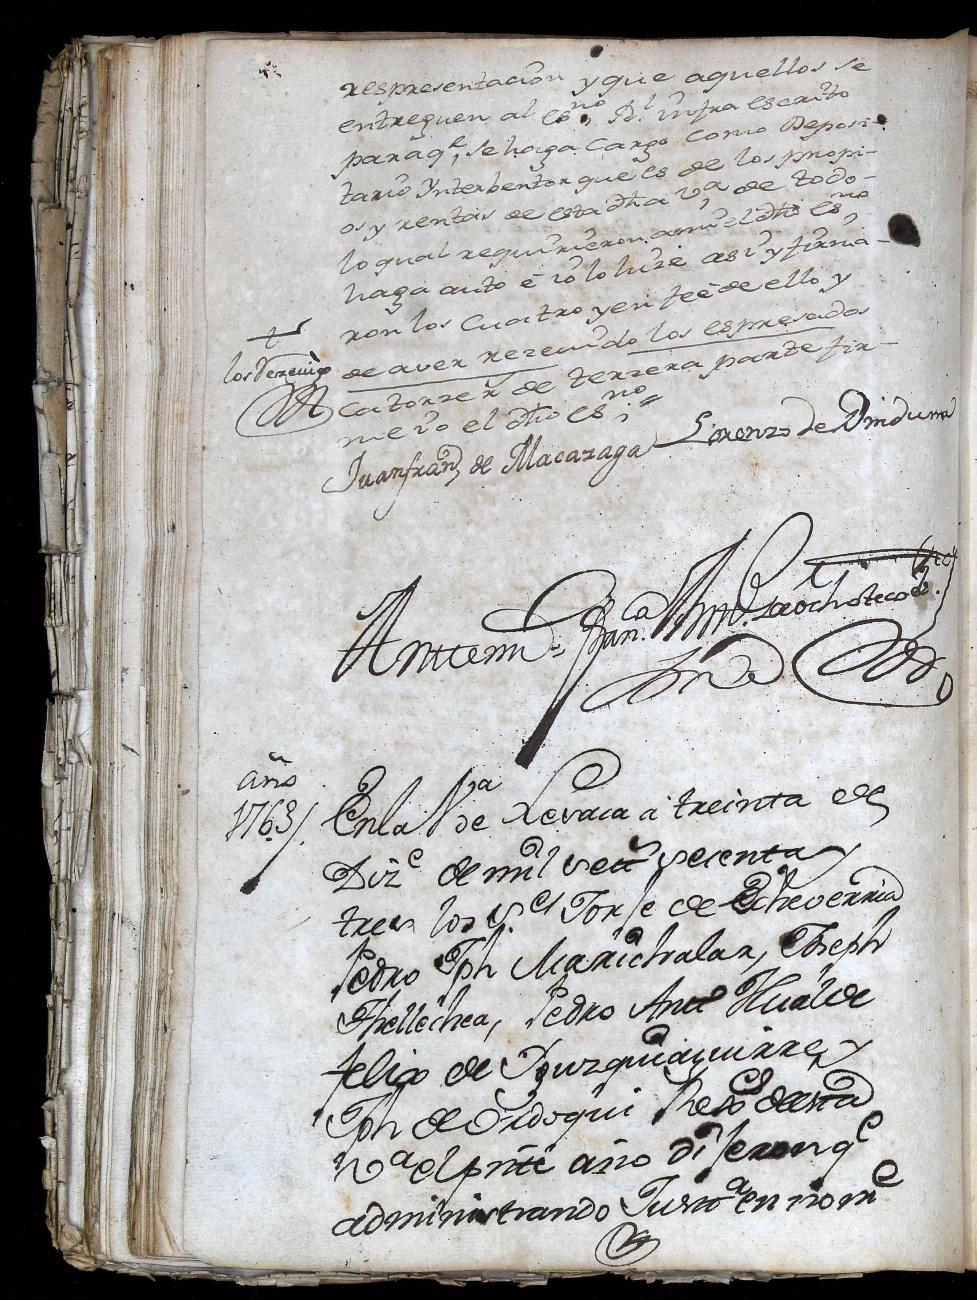 respresentacion y que aquellos se
entreguen al es.no R.l infra escrito
paraq.e se haga Cargo como Deposi-
tario Ynterbentor que es de los propi-
os y rentas de esta dha v.a de todo-
lo qual requirieron a mi el dho es.no
haga auto e io lo hize asi y firma-
ron los Cuatro y en feê de ello y
de aver rezeuido los espresados
catorze r.s de terzera parte fir-
me io el dho es.no
los Rezeuigo
Juanfran.co de Macazaga Lorenzo de Vindurria
Antte mi Fran.ca Ant.o
año
1763
En la V.a de Lesaca a treinta de
Diz.e de mil sett.s y sesenta y
tres los S.es Jorse de Echeverria
Pedro Jph Marichalar, Joseph
Thellechea, Pedro Antt.o Hualde
felix de Yruzquiaguirre y
Jph de Ordoqui Rexs de esta
V.a el pnte año dijeron q.e
administrando Justt.a en nom.e